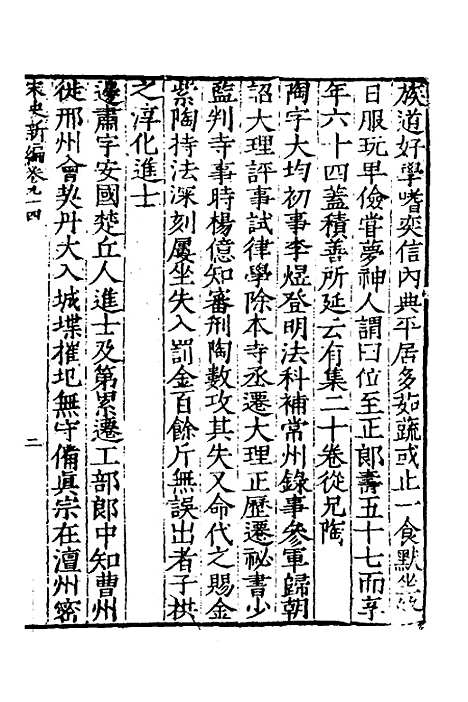 族道好學嗜奕信內典平居多茹蔬或止一食默坐終
日服玩卑儉甞夢神人謂曰位至正郎壽五十七而享
年六十四蓋積善所延云有集二十卷從兄陶
陶字大均初事李煜登明法科補常州錄事參軍歸朝
詔大理評事試律學除本寺丞遷大理正歷遷祕書少
監判寺事時楊億知審刑陶數攻其失又命代之賜金
紫陶持法深刻屢坐失入罰金百餘斤無誤出者子拱
之淳化進士
邊肅字安國楚丘人進士及第累遷工部郎中知曹州
徙邢州會契丹大入城堞摧圮無守備眞宗在澶州密
宋史新編卷九十四
二